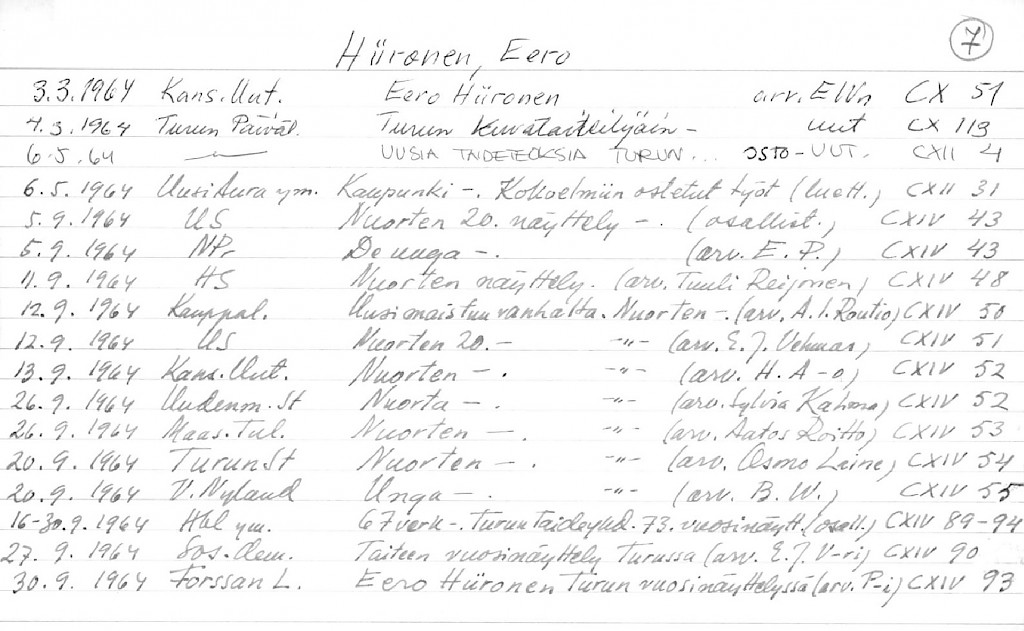 Hiironen, Eero 7
3.3.1964 Kans.Uut. Eero Hiironen arv. EWn CX 51
4.3.1964 Turun Päiväl. Turun Kuvataiteilijain - uut CX 113
6.5.64 — UUSIA TAIDETEOKSIA TURUN... OSTO-UUT. CXII 4
6.5.1964 Uusi Aura ym. Kaupunki -. Kokoelmiin ostetut työt (luett.) CXII 31
5.9.1964 US Nuorten 20. näyttely -. (osallist.) CXIV 43
5.9.1964 NPr De unga -. (arv. E. P.) CXIV 43
11.9.1964 HS Nuorten näyttely. (arv. Tuuli Reijonen) CXIV 48
12.9.1964 Kauppal. Uusi maistuu vanhalta. Nuorten -. (arv. A.I. Routio) CXIV 50
12.9.1964 US Nuorten 20. - -"- (arv. E.J. Vehmas) CXIV 51
13.9.1964 Kans.Uut. Nuorten - . -"- (arv. H. A-o) CXIV 52
26.9.1964 Uudenm. St Nuorta - . -"- (arv. Sylvia Kahma) CXIV 52
26.9.1964 Maas.Tul. Nuorten - . -"- (arv. Aatos Roitto) CXIV 53
20.9.1964 Turun St Nuorten - . -"- (arv. Osmo Laine) CXIV 54
20.9.1964 V. Nyland Unga - . -"- (arv. B. W.) CXIV 55
16-30.9.1964 Hbl ym. 67 verk -. Turun taideyhd. 73. vuosinäytt. (osall.) CXIV 89-94
27.9.1964 Sos.Dem. Taiteen vuosinäyttely Turussa (arv. E.J. V-ri) CXIV 90
30.9.1964 Forssan L. Eero Hiironen Turun vuosinäyttelyssä (arv. P-i) CXIV 93